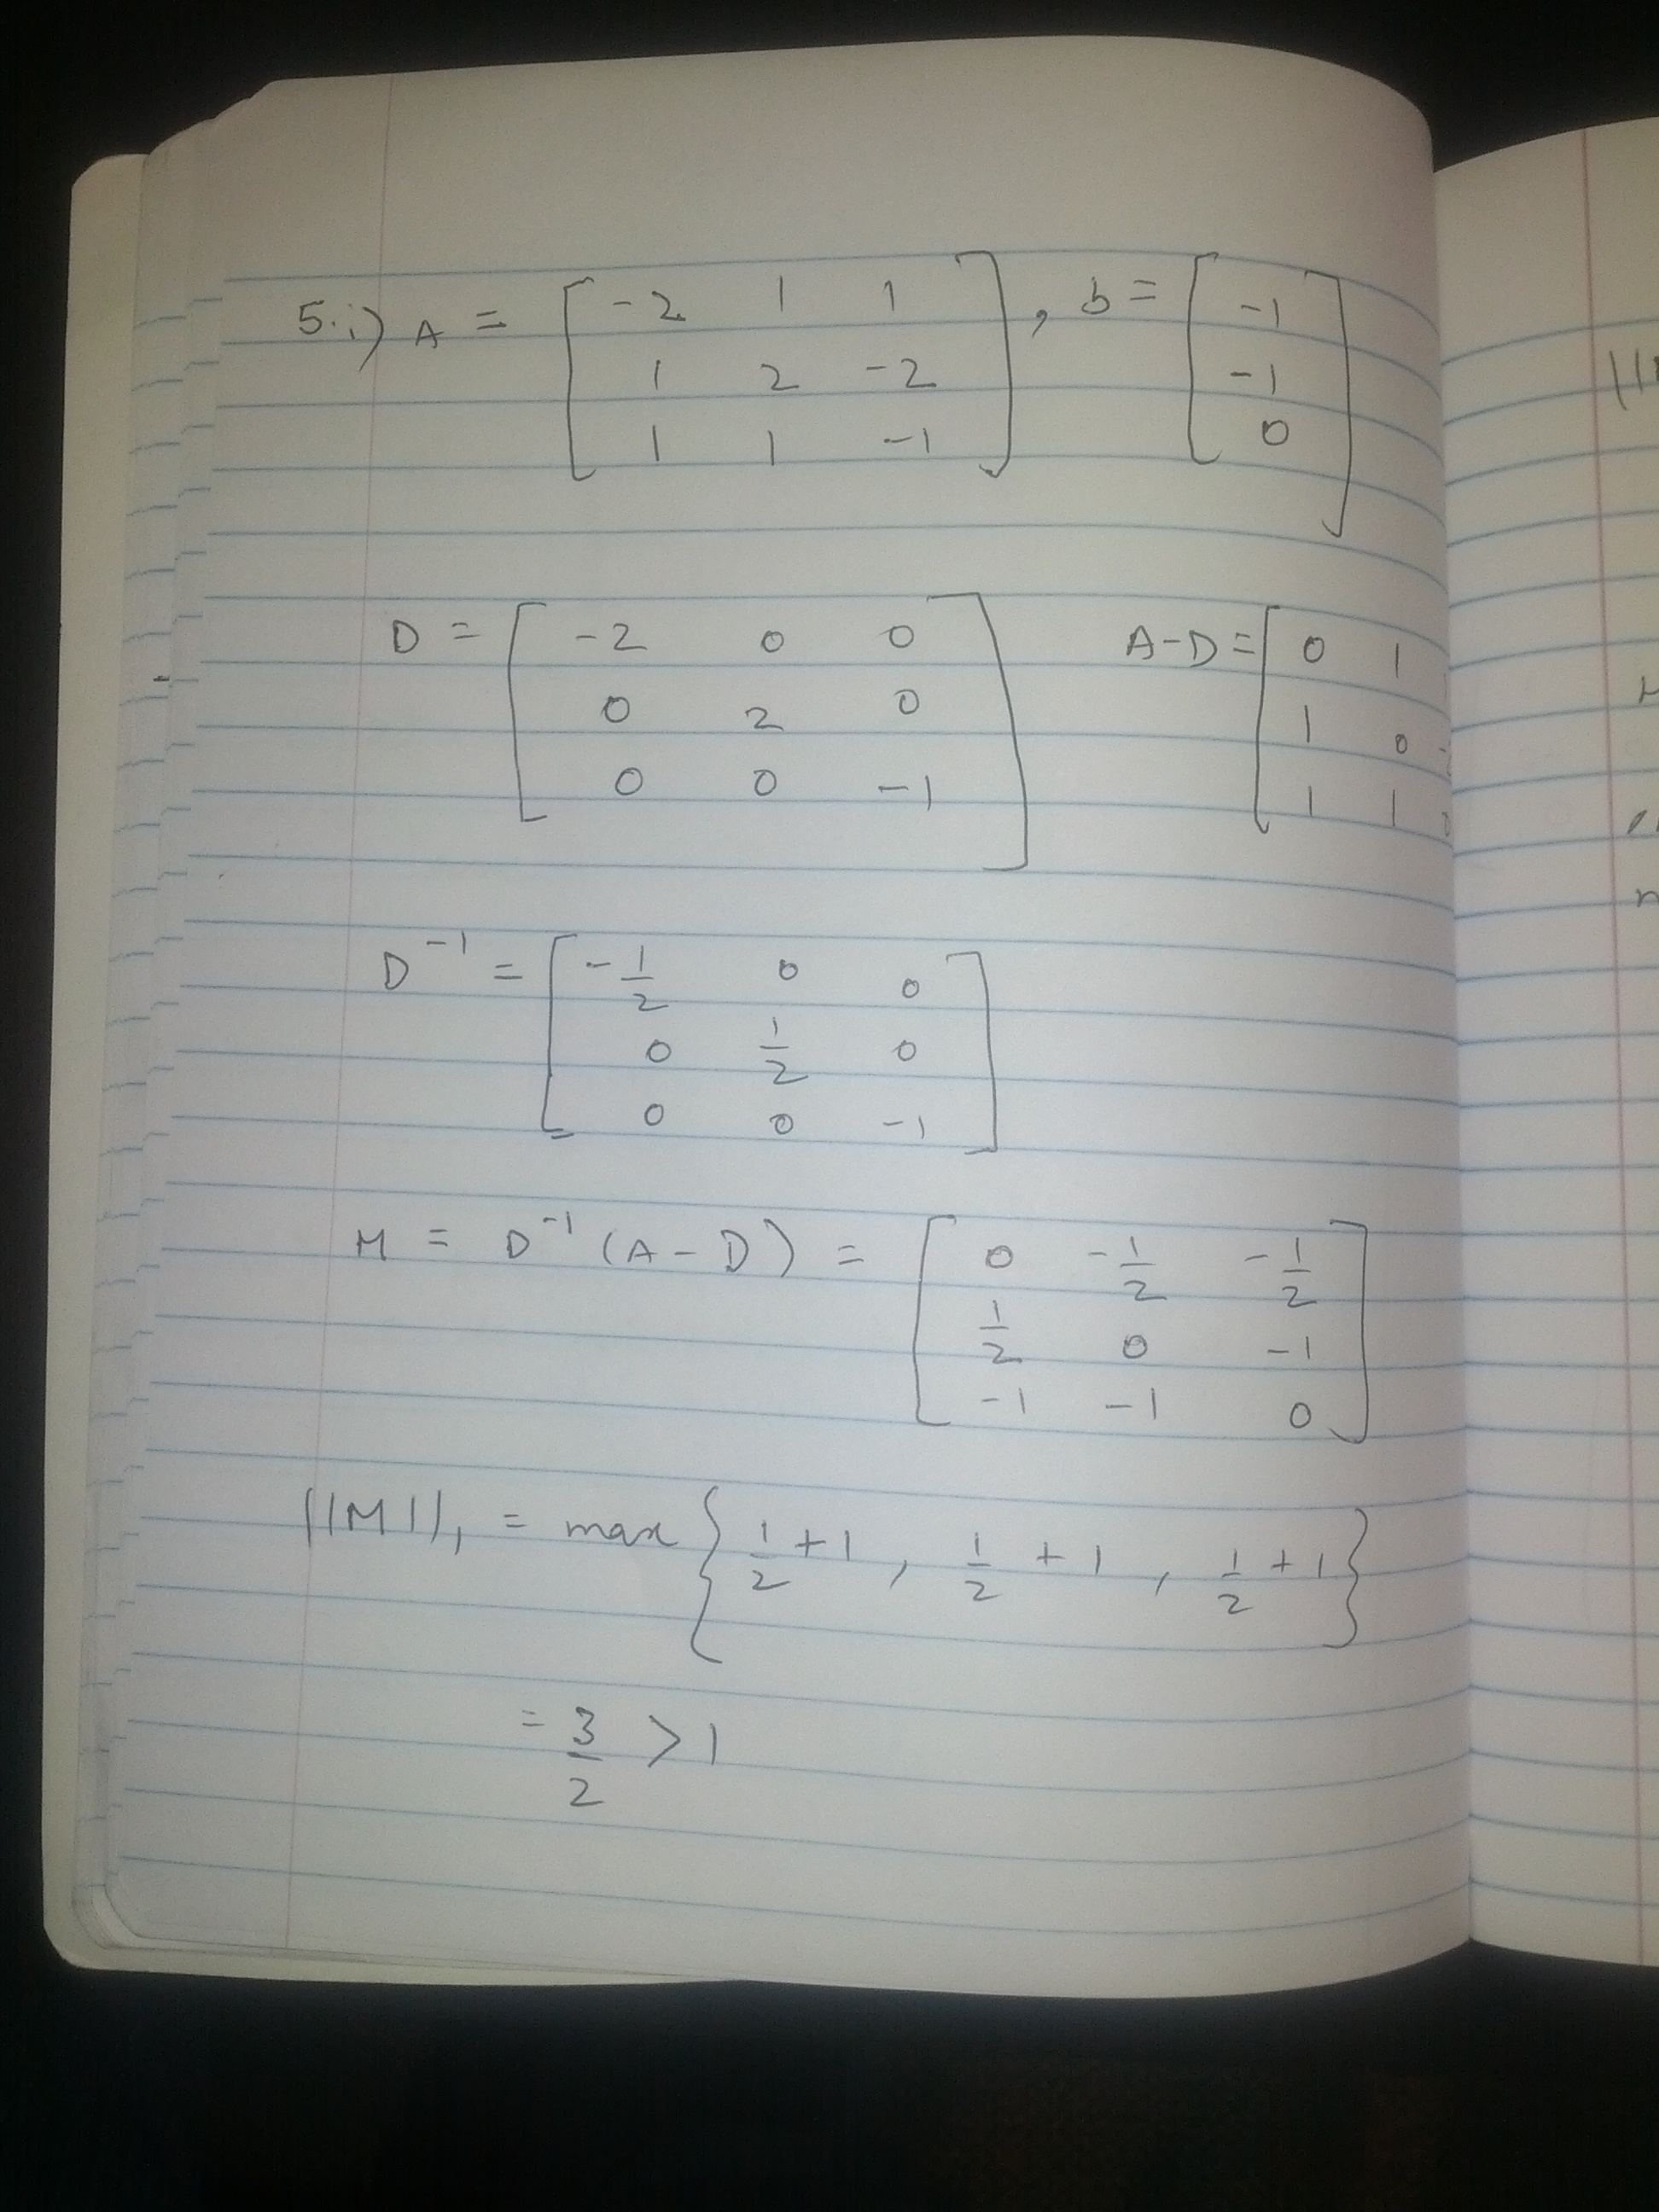 5.i) A = [ -2 1 1 ; 1 2 -2 ; 1 1 -1 ] , b = [ -1 ; -1 ; 0 ]
D = [ -2 0 0 ; 0 2 0 ; 0 0 -1 ] A-D = [ 0 1 ; 1 0 - ; 1 1
D^-1 = [ -1/2 0 0 ; 0 1/2 0 ; 0 0 -1 ]
M = D^-1 (A - D) = [ 0 -1/2 -1/2 ; 1/2 0 -1 ; -1 -1 0 ]
||M||_1 = max { 1/2 + 1 , 1/2 + 1 , 1/2 + 1 }
= 3/2 > 1